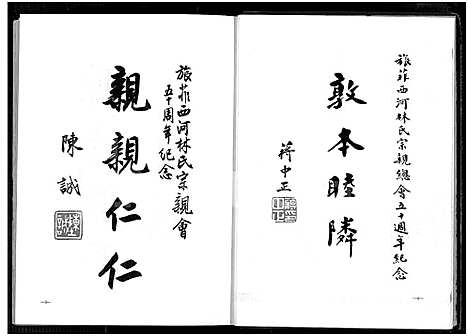 旅菲西河林氏宗親總會五十週年紀念
敦本睦隣
蔣中正
旅菲西河林氏宗親會
五十周年紀念
親親仁仁
陳誠